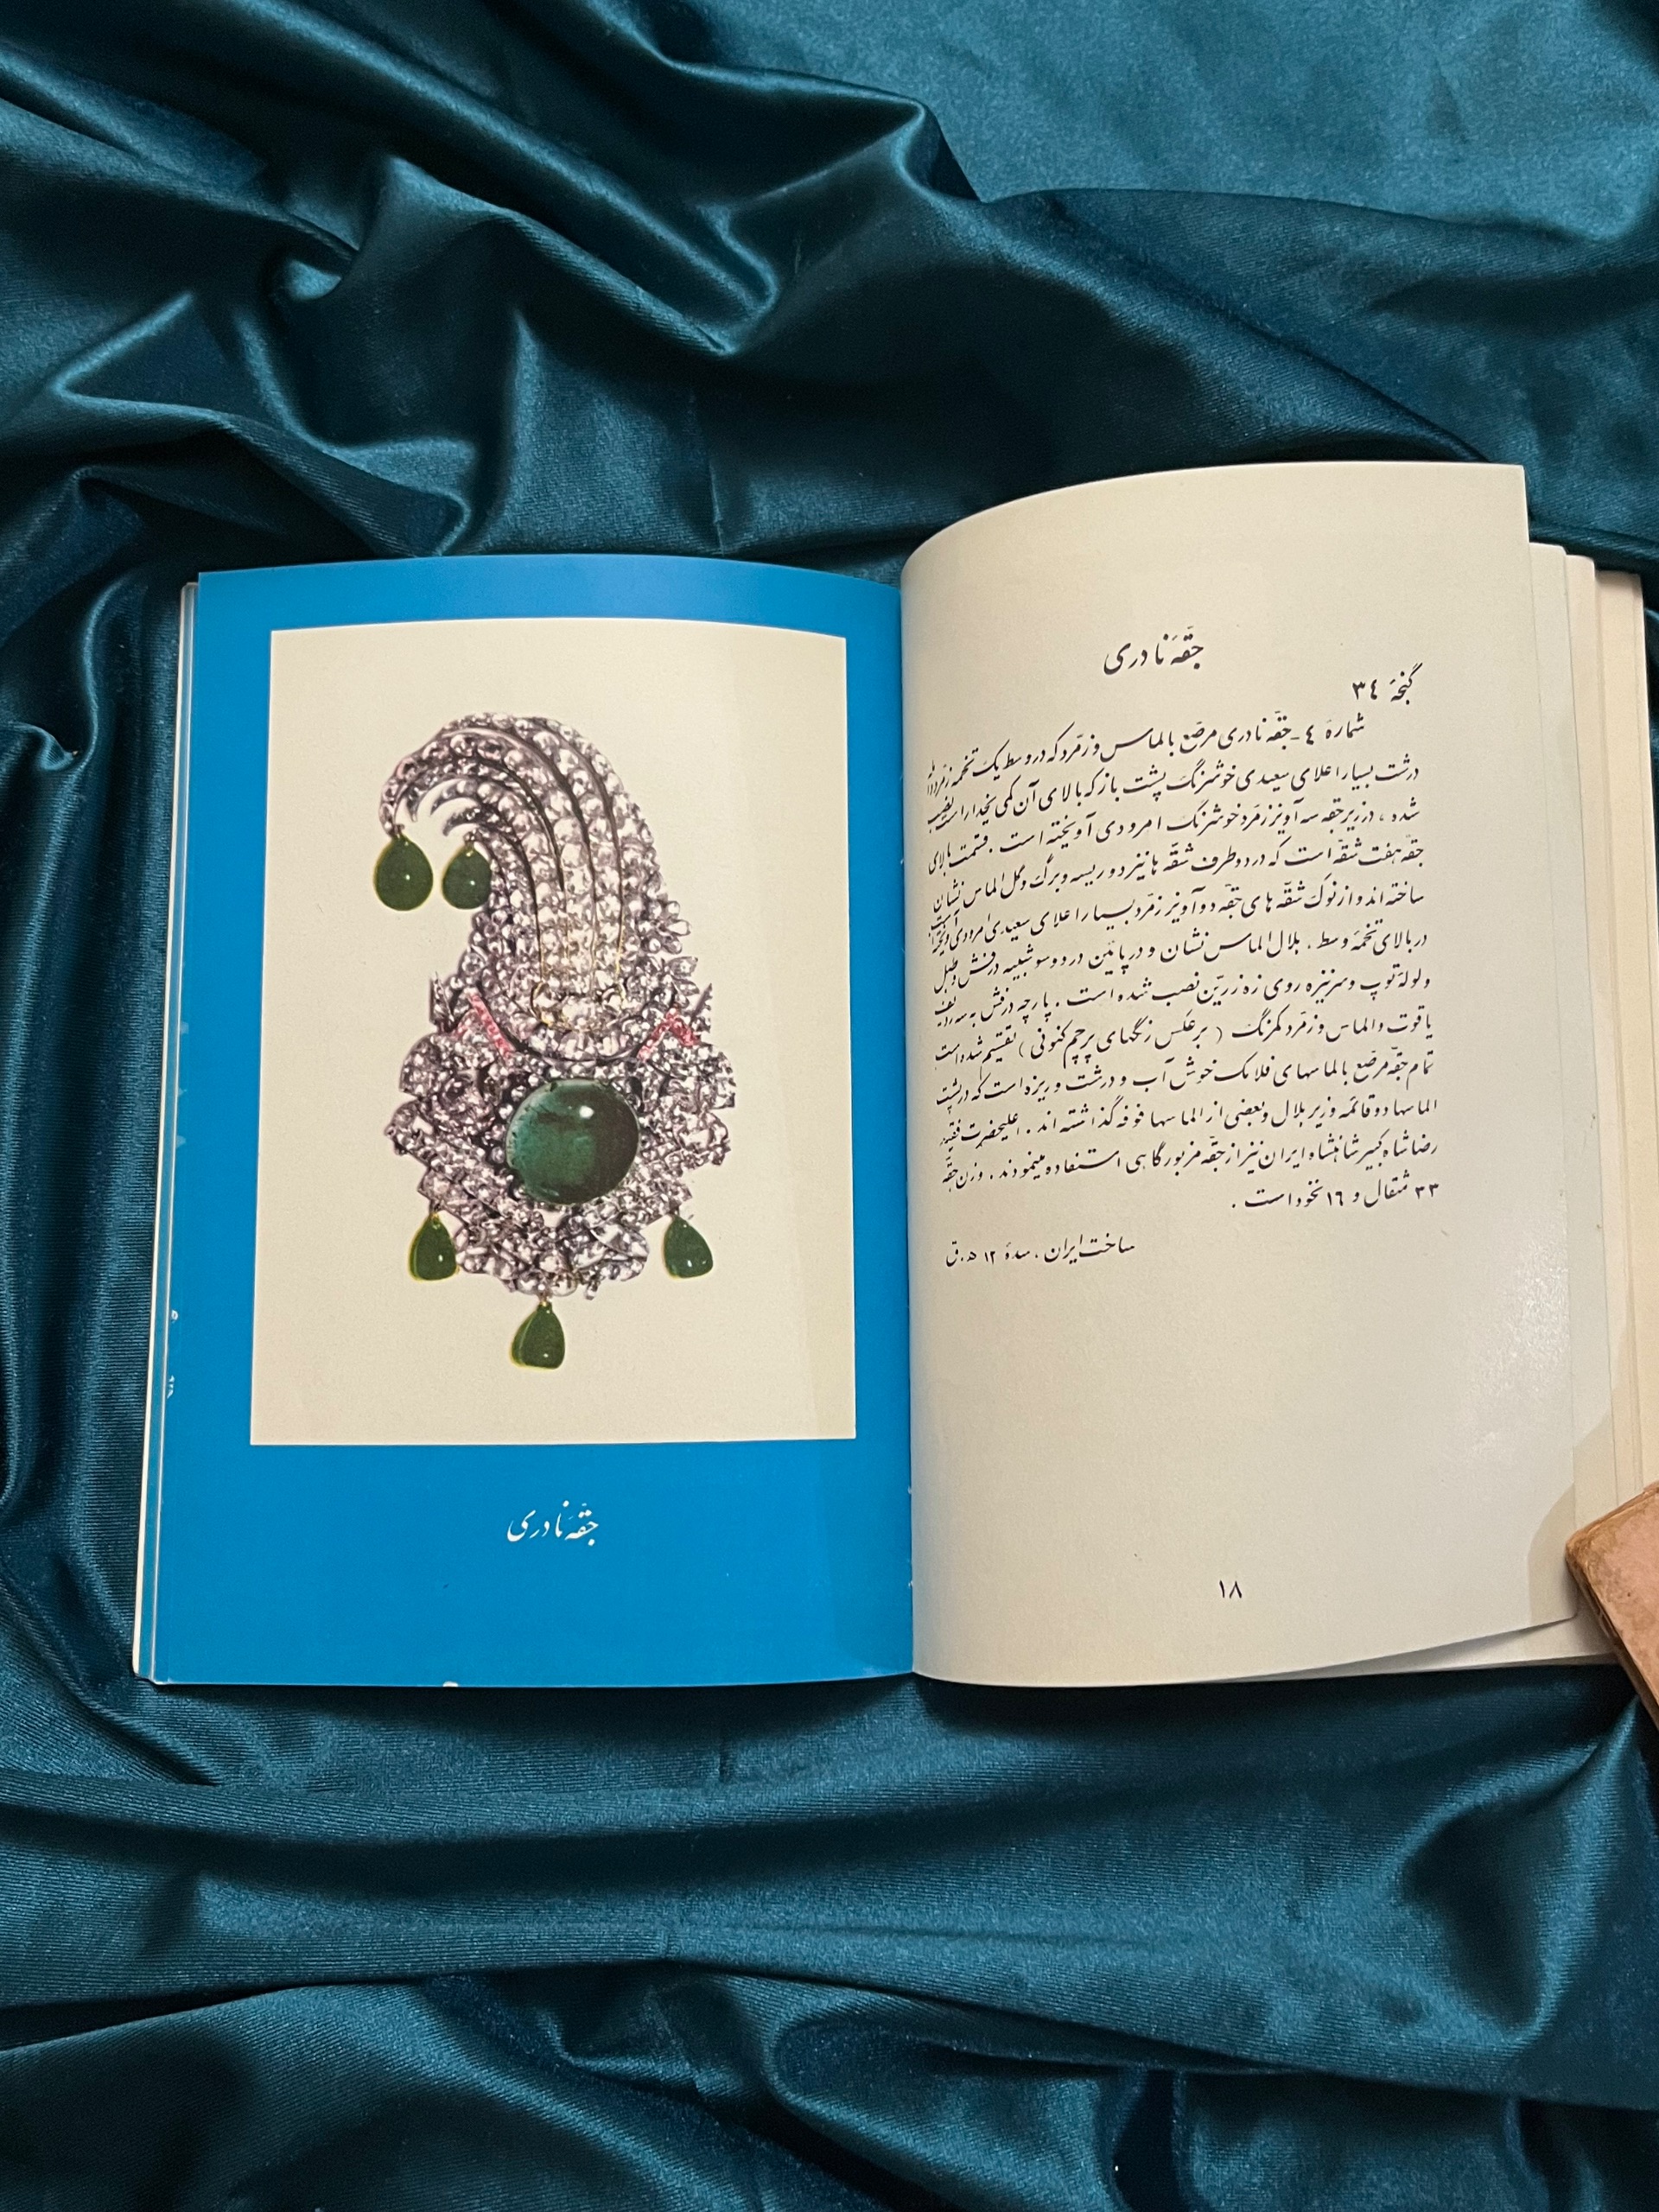 جقّهٔ نادری
گنجهٔ ۳٤
شمارهٔ ٤ - جقّهٔ نادری مرصّع بالماس و زمرّد که در وسط یک تخمه زمرّد
درشت بسیار اعلای سعیدی خوشرنگ پشت باز که بالای آن کمی یخدار است نصب
شده ، در زیر جقه سه آویز زمرّد خوشرنگ امرودی آویخته است . قسمت بالای
جقّه هفت شقّه است که در دو طرف شقّه ها نیز دو ریسه و برگ و گل الماس نشان
ساخته اند و از نوک شقّه های جقّه دو آویز زمرّد بسیار اعلای سعیدی امرودی
در بالای تخمهٔ وسط ، هلال الماس نشان و در پائین در دو سو شبیه درفش و طبل
و لوله توپ و سرنیزه روی زه زرّین نصب شده است . پارچه درفش به سه ردیف
یاقوت و الماس و زمرّد کمرنگ ( برعکس رنگهای پرچم کنونی ) تقسیم شده است
تمام جقّه مرصّع بالماسهای فلامک خوش آب و درشت و ریزه است که در پشت
الماسها دو قائمه و زیر هلال و بعضی از الماسها فوفه گذاشته اند . اعلیحضرت فقید
رضا شاه کبیر شاهنشاه ایران نیز از جقّه مزبور گاهی استفاده مینمودند . وزن جقّه
۳۳ مثقال و ۱٦ نخود است .
ساخت ایران ، سدهٔ ۱۲ ه . ق
۱۸
جقّهٔ نادری